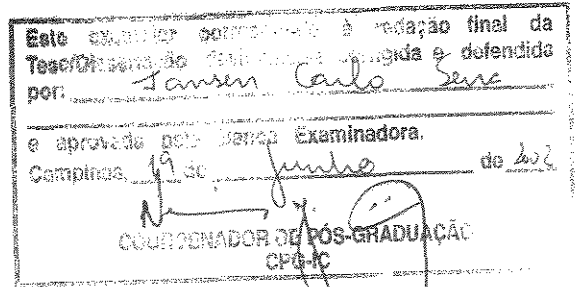 Este exemplar corresponde à redação final da
Tese/Dissertação devidamente corrigida e defendida
por: Jansen Carlo Sena
e aprovada pela Banca Examinadora.
Campinas, 19 de junho de 2002
COORDENADOR DE PÓS-GRADUAÇÃO
CPG-IC